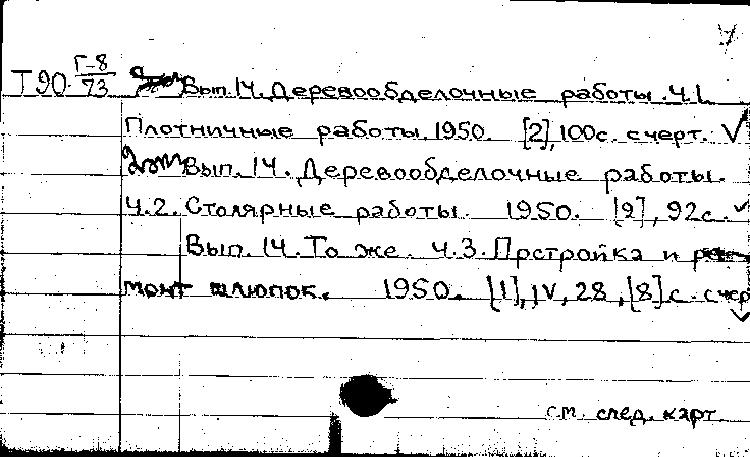 7
Т90 Г-8/73 Вып. 14. Деревообделочные работы. Ч.1.
Плотничные работы. 1950. [2], 100с. с черт. ✓
Вып. 14. Деревообделочные работы.
Ч.2. Столярные работы. 1950. [2], 92с. ✓
Вып. 14. То же. Ч.3. Постройка и ре-
монт шлюпок. 1950. [1], IV, 28, [8] с. с чер
см. след. карт.